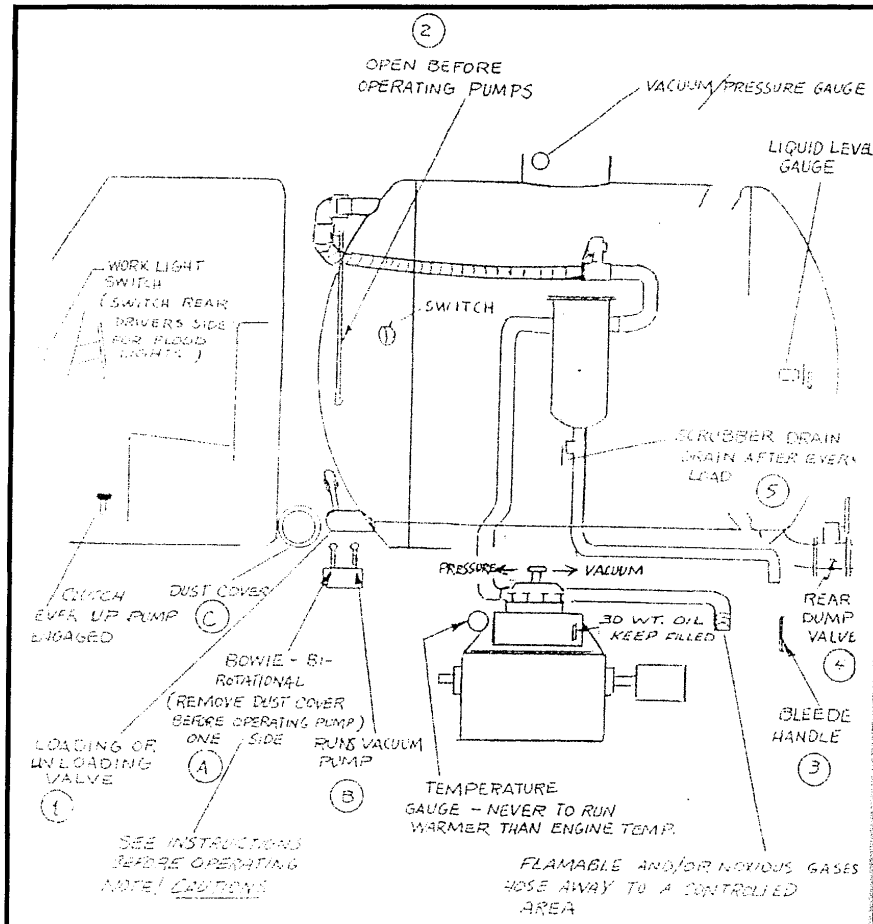 2
OPEN BEFORE
OPERATING PUMPS
VACUUM/PRESSURE GAUGE
LIQUID LEVEL
GAUGE
WORK LIGHT
SWITCH
(SWITCH REAR
DRIVERS SIDE
FOR FLOOD
LIGHTS)
SWITCH
SCRUBBER DRAIN
DRAIN AFTER EVERY
LOAD
5
PRESSURE
VACUUM
30 WT. OIL
KEEP FILLED
CLUTCH
EVER UP PUMP
ENGAGED
DUST COVER
C
BOWIE - BI-
ROTATIONAL
(REMOVE DUST COVER
BEFORE OPERATING PUMP)
ONE SIDE
A
RUNS VACUUM
PUMP
B
REAR
DUMP
VALVE
4
BLEEDE
HANDLE
3
LOADING OR
UNLOADING
VALVE
1
TEMPERATURE
GAUGE - NEVER TO RUN
WARMER THAN ENGINE TEMP.
SEE INSTRUCTIONS
BEFORE OPERATING
NOTE/ CAUTIONS
FLAMABLE AND/OR NOXIOUS GASES
HOSE AWAY TO A CONTROLLED
AREA